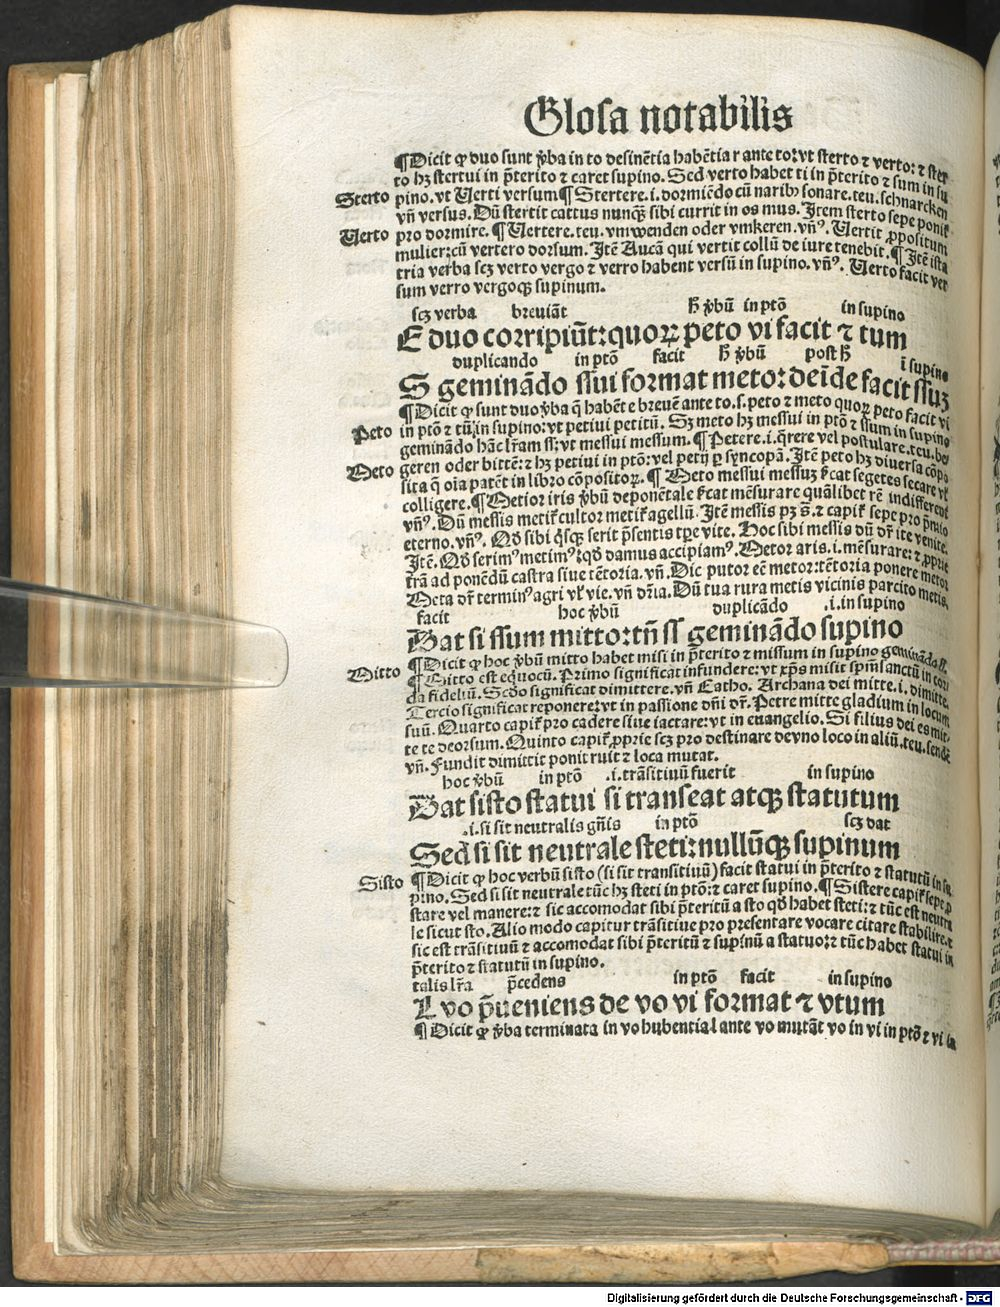 Glosa notabilis
¶Dicit ꝙ duo sunt v̈ba in to desinẽtia habẽtia r ante to: vt sterto ⁊ verto: ⁊ ster
to hꝫ stertui in p̃terito ⁊ caret supino. Sed verto habet ti in p̃terito ⁊ sum in su
Sterto pino. vt Uerti versum ¶Stertere .i. dormiẽdo cũ narib⁹ sonare. teu. schnarcken
vñ versus. Dũ stertit cattus nunqᷓ sibi currit in os mus. Item sterto sepe ponit᷑
Uerto pro dormire. ¶Uertere. teu. vmwenden oder vmkeren. vñ⁹. Uertit ꝓpositum
mulier: cũ vertero dorsum. Itẽ Aucã qui vertit collũ de iure tenebit. ¶Itẽ ista
tria verba scꝫ verto vergo ⁊ verro habent versũ in supino. vñ⁹. Uerto facit ver
sum verro vergoqꝫ supinum.
scꝫ verba breuiãt h̃ v̈bũ in ptõ in supino
E duo corripiũt: quoꝝ peto vi facit ⁊ tum
duplicando in ptõ facit h̃ v̈bũ post h̃ ĩ supino
S geminãdo ssui format meto: deĩde facit ssuꝫ
¶Dicit ꝙ sunt duo v̈ba q̃ habẽt e breuẽ ante to. s. peto ⁊ meto quoꝝ peto facit vi
Peto in ptõ ⁊ tũ in supino: vt petiui petitũ. Sꝫ meto hꝫ messui in ptõ ⁊ ssum in supino
geminãdo hãc lr̃am ss: vt messui messum. ¶Petere .i. q̃rere vel postulare. teu. be
Meto geren oder bittẽ: ⁊ hꝫ petiui in ptõ: vel petij ꝑ syncopã. Itẽ peto hꝫ diuersa cõpo
sita q̃ oĩa patẽt in libro cõpositoꝝ. ¶Meto messui messuꝫ sᷓcat segetes secare vl̃
colligere. ¶Metior iris v̈bũ deponẽtale sᷓcat mẽsurare quãlibet rẽ indifferent̃
vñ⁹. Dũ messis metit᷑ cultor metit᷑ agellũ. Itẽ messis pꝫ s̃. ⁊ capit᷑ sepe pro p̃mio
eterno. vñ⁹. Qð sibi q̃sqꝫ serit p̃sentis tꝑe vite. Hoc sibi messis dũ dr̃ ite venite.
Itẽ. Qð serim⁹ metim⁹: qð damus accipiam⁹. Metor aris .i. mẽsurare: ⁊ ꝓprie
tr̃ã ad ponẽdũ castra siue tẽtoria. vñ. Dic putor eẽ metor: tẽtoria ponere metor
Meta dr̃ termin⁹ agri vl̃ vie. vñ dr̃ia. Dũ tua rura metis vicinis parcito metis.
facit hoc v̈bũ duplicãdo .i. in supino
Dat si ssum mitto: tñ ss geminãdo supino
¶Dicit ꝙ hoc v̈bũ mitto habet misi in p̃terito ⁊ missum in supino geminãdo ss.
Mitto ¶Mitto est equocũ. Primo significat infundere: vt xp̃s misit spm̃sanctũ in cor
da fideliũ. Scðo significat dimittere. vñ Catho. Archana dei mitte .i. dimitte.
Tercio significat reponere: vt in passione dñi dr̃. Petre mitte gladium in locum
suũ. Quarto capit᷑ pro cadere siue iactare: vt in euangelio. Si filius dei es mit-
te te deorsum. Quinto capit᷑ ꝓprie scꝫ pro destinare de vno loco in aliũ. teu. sendẽ
vñ. Fundit dimittit ponit ruit ⁊ loca mutat.
hoc v̈bũ in ptõ .i. trãsitiuũ fuerit in supino
Dat sisto statui si transeat atqꝫ statutum
.i. si sit neutralis gñis in ptõ scꝫ dat
Sed si sit neutrale steti: nullũqꝫ supinum
Sisto ¶Dicit ꝙ hoc verbũ sisto (si sit transitiuũ) facit statui in p̃terito ⁊ statutũ in su
pino. Sed si sit neutrale tũc hꝫ steti in ptõ: ⁊ caret supino. ¶Sistere capit᷑ sepe ꝓ
stare vel manere: ⁊ sic accomodat sibi p̃teritũ a sto qð habet steti: ⁊ tũc est neutra
le sicut sto. Alio modo capitur trãsitiue pro presentare vocare citare stabilire. ⁊
sic est trãsitiuũ ⁊ accomodat sibi p̃teritũ ⁊ supinũ a statuo: ⁊ tũc habet statui in
p̃terito ⁊ statutũ in supino.
talis lr̃a p̃cedens in ptõ facit in supino
L vo p̃ueniens de vo vi format ⁊ vtum
¶Dicit ꝙ v̈ba terminata in vo hubentia l ante vo mutãt vo in vi in ptõ ⁊ vi in
Digitalisierung gefördert durch die Deutsche Forschungsgemeinschaft - DFG